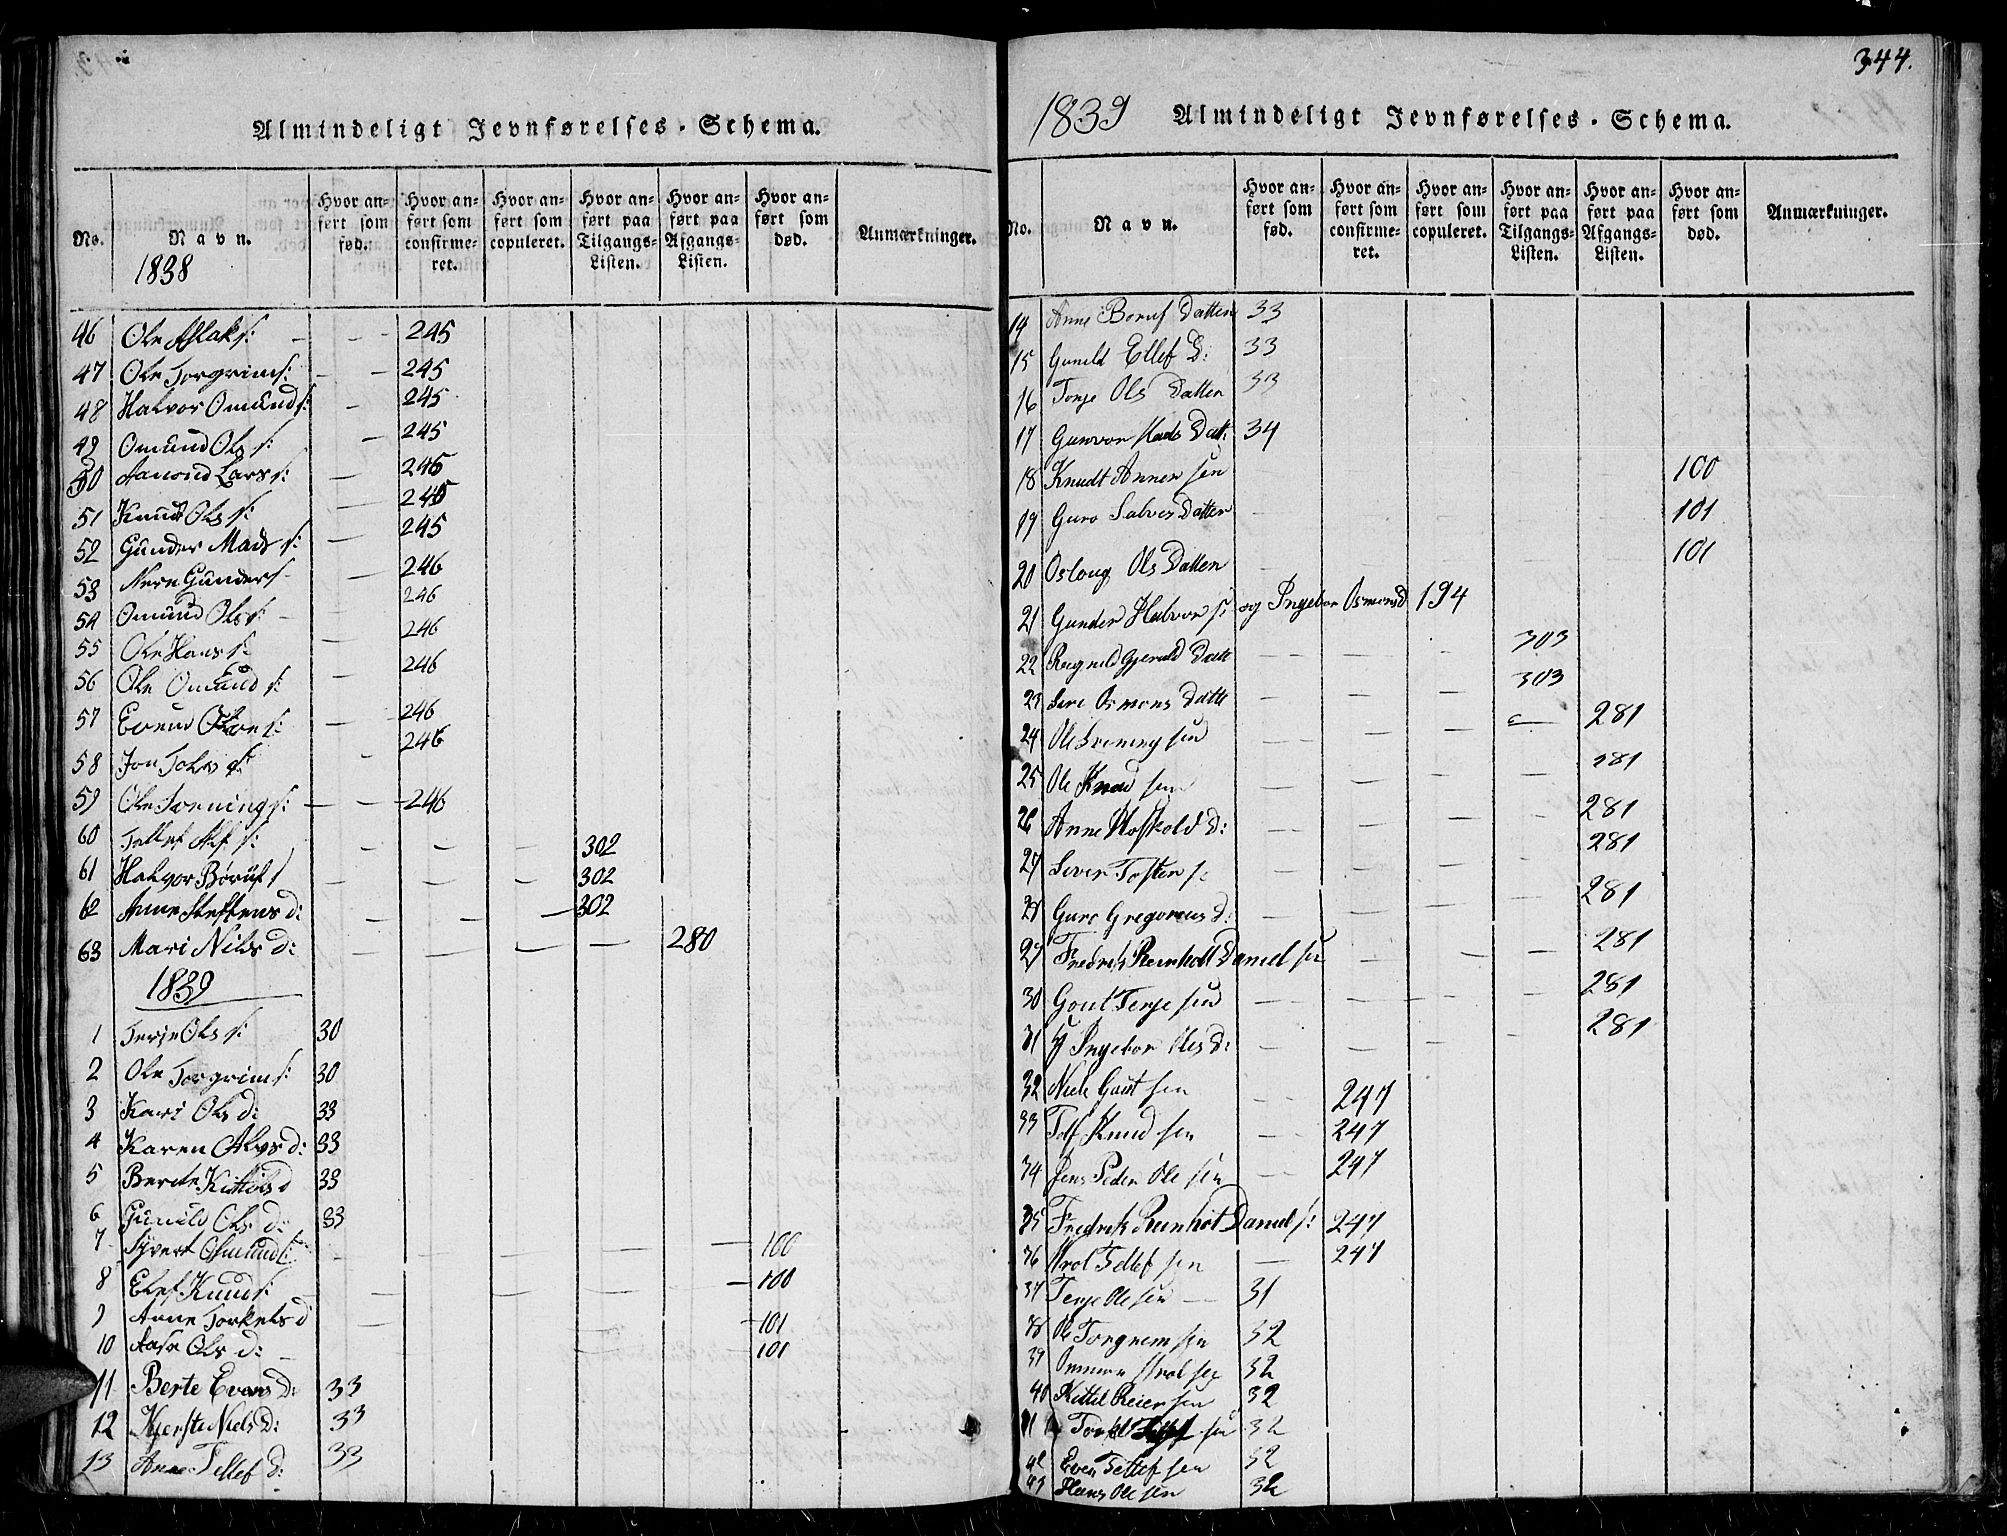 Almindeligt Jevnførelses-Schema.
No. | Navn. | Hvor anført som fød. | Hvor anført som confirmeret. | Hvor anført som copuleret. | Hvor anført paa Tilgangs-Listen. | Hvor anført paa Afgangs-Listen. | Hvor anført som død. | Anmærkninger.
1838
46 Ole Aslaks: 245
47 Ole Torgrims: 245
48 Halvor Omunds: 245
49 Omund Ols s: 245
50 Aamond Lars s: 246
51 Knud Ols s: 246
52 Gunder Mads s: 245
53 Nere Gunders 246
54 Omund Ols s: 246
55 Ole Hans s: 246
56 Ole Omund s: 246
57 Evend s: 246
58 Jon s: 246
59 Ole Svenings: 246
60 Tellef s: 302
61 Halvor Børufs 302
62 Anne Steffens d: 302
63 Mari Nils d: 280
1839
1 Terje Ols s: 30
2 Ole Torgrims: 30
3 Kari Ols d: 33
4 Karen Alvs d: 33
5 Berte Kittils d 33
6 Gunild Ols d: 33
7 Syvert Osmunds: 100
8 Elef Knuds: 100
9 Anne Torkels d 101
10 Aase Ols d: 101
11 Berte Evens D: 33
12 Kjerste Niels D: 33
13 Anne Tellef d: 33
344.
1839 Almindeligt Jevnførelses-Schema.
No. | Navn. | Hvor anført som fød. | Hvor anført som confirmeret. | Hvor anført som copuleret. | Hvor anført paa Tilgangs-Listen. | Hvor anført paa Afgangs-Listen. | Hvor anført som død. | Anmærkninger.
14 Anne Boruf Datter 33
15 Gunild Ellef D: 33
16 Tonje Ols Datter 33
17 Gunvor Mads Datt: 34
18 Knudt Anner sen 100
19 Guro Salves Datter 101
20 Osloug Ols Datter 101
21 Gunder Halvor s: og Ingebor Osmonsd 194
22 Ragnild Gjeruld Datt 303
23 Siri Osmons Datte 303
24 Ole Svening sen 281
25 Ole Knud sen 281
26 Anne Hoskold d: 281
27 Siver Tosten s: 281
28 Guro Gregoreus d: 281
29 Fredrik Reinholt Daniel sen 281
30 Gout Terje sen 281
31 Ingebor Oles d: 281
32 Niels Gout sen 247
33 Tolf Knud sen 247
34 Jens Peder Ole sen 247
35 Fredrik Reinholt Daniel s: 247
36 Arol Tellef sen 247
37 Terje Ole sen 31
38 Ole Torgrem sen 32
39 Arol sen 32
40 Kittil Reier sen 32
41 Torkel sen 32
42 Even Tellef sen 32
43 Hans Ole sen 32